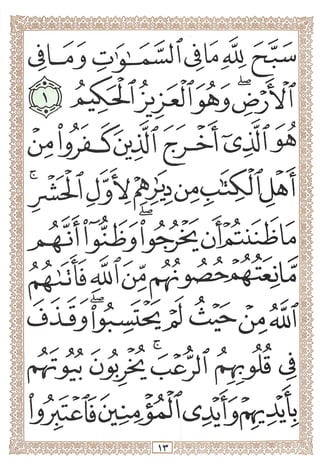 سَبَّحَ لِلَّهِ مَا فِى ٱلسَّمَٰوَٰتِ وَمَا فِى
ٱلْأَرْضِ ۖ وَهُوَ ٱلْعَزِيزُ ٱلْحَكِيمُ ١
هُوَ ٱلَّذِىٓ أَخْرَجَ ٱلَّذِينَ كَفَرُوا۟ مِنْ
أَهْلِ ٱلْكِتَٰبِ مِن دِيَٰرِهِمْ لِأَوَّلِ ٱلْحَشْرِ ۚ
مَا ظَنَنتُمْ أَن يَخْرُجُوا۟ ۖ وَظَنُّوٓا۟ أَنَّهُم
مَّانِعَتُهُمْ حُصُونُهُم مِّنَ ٱللَّهِ فَأَتَىٰهُمُ
ٱللَّهُ مِنْ حَيْثُ لَمْ يَحْتَسِبُوا۟ ۖ وَقَذَفَ
فِى قُلُوبِهِمُ ٱلرُّعْبَ ۚ يُخْرِبُونَ بُيُوتَهُم
بِأَيْدِيهِمْ وَأَيْدِى ٱلْمُؤْمِنِينَ فَٱعْتَبِرُوا۟
١٣